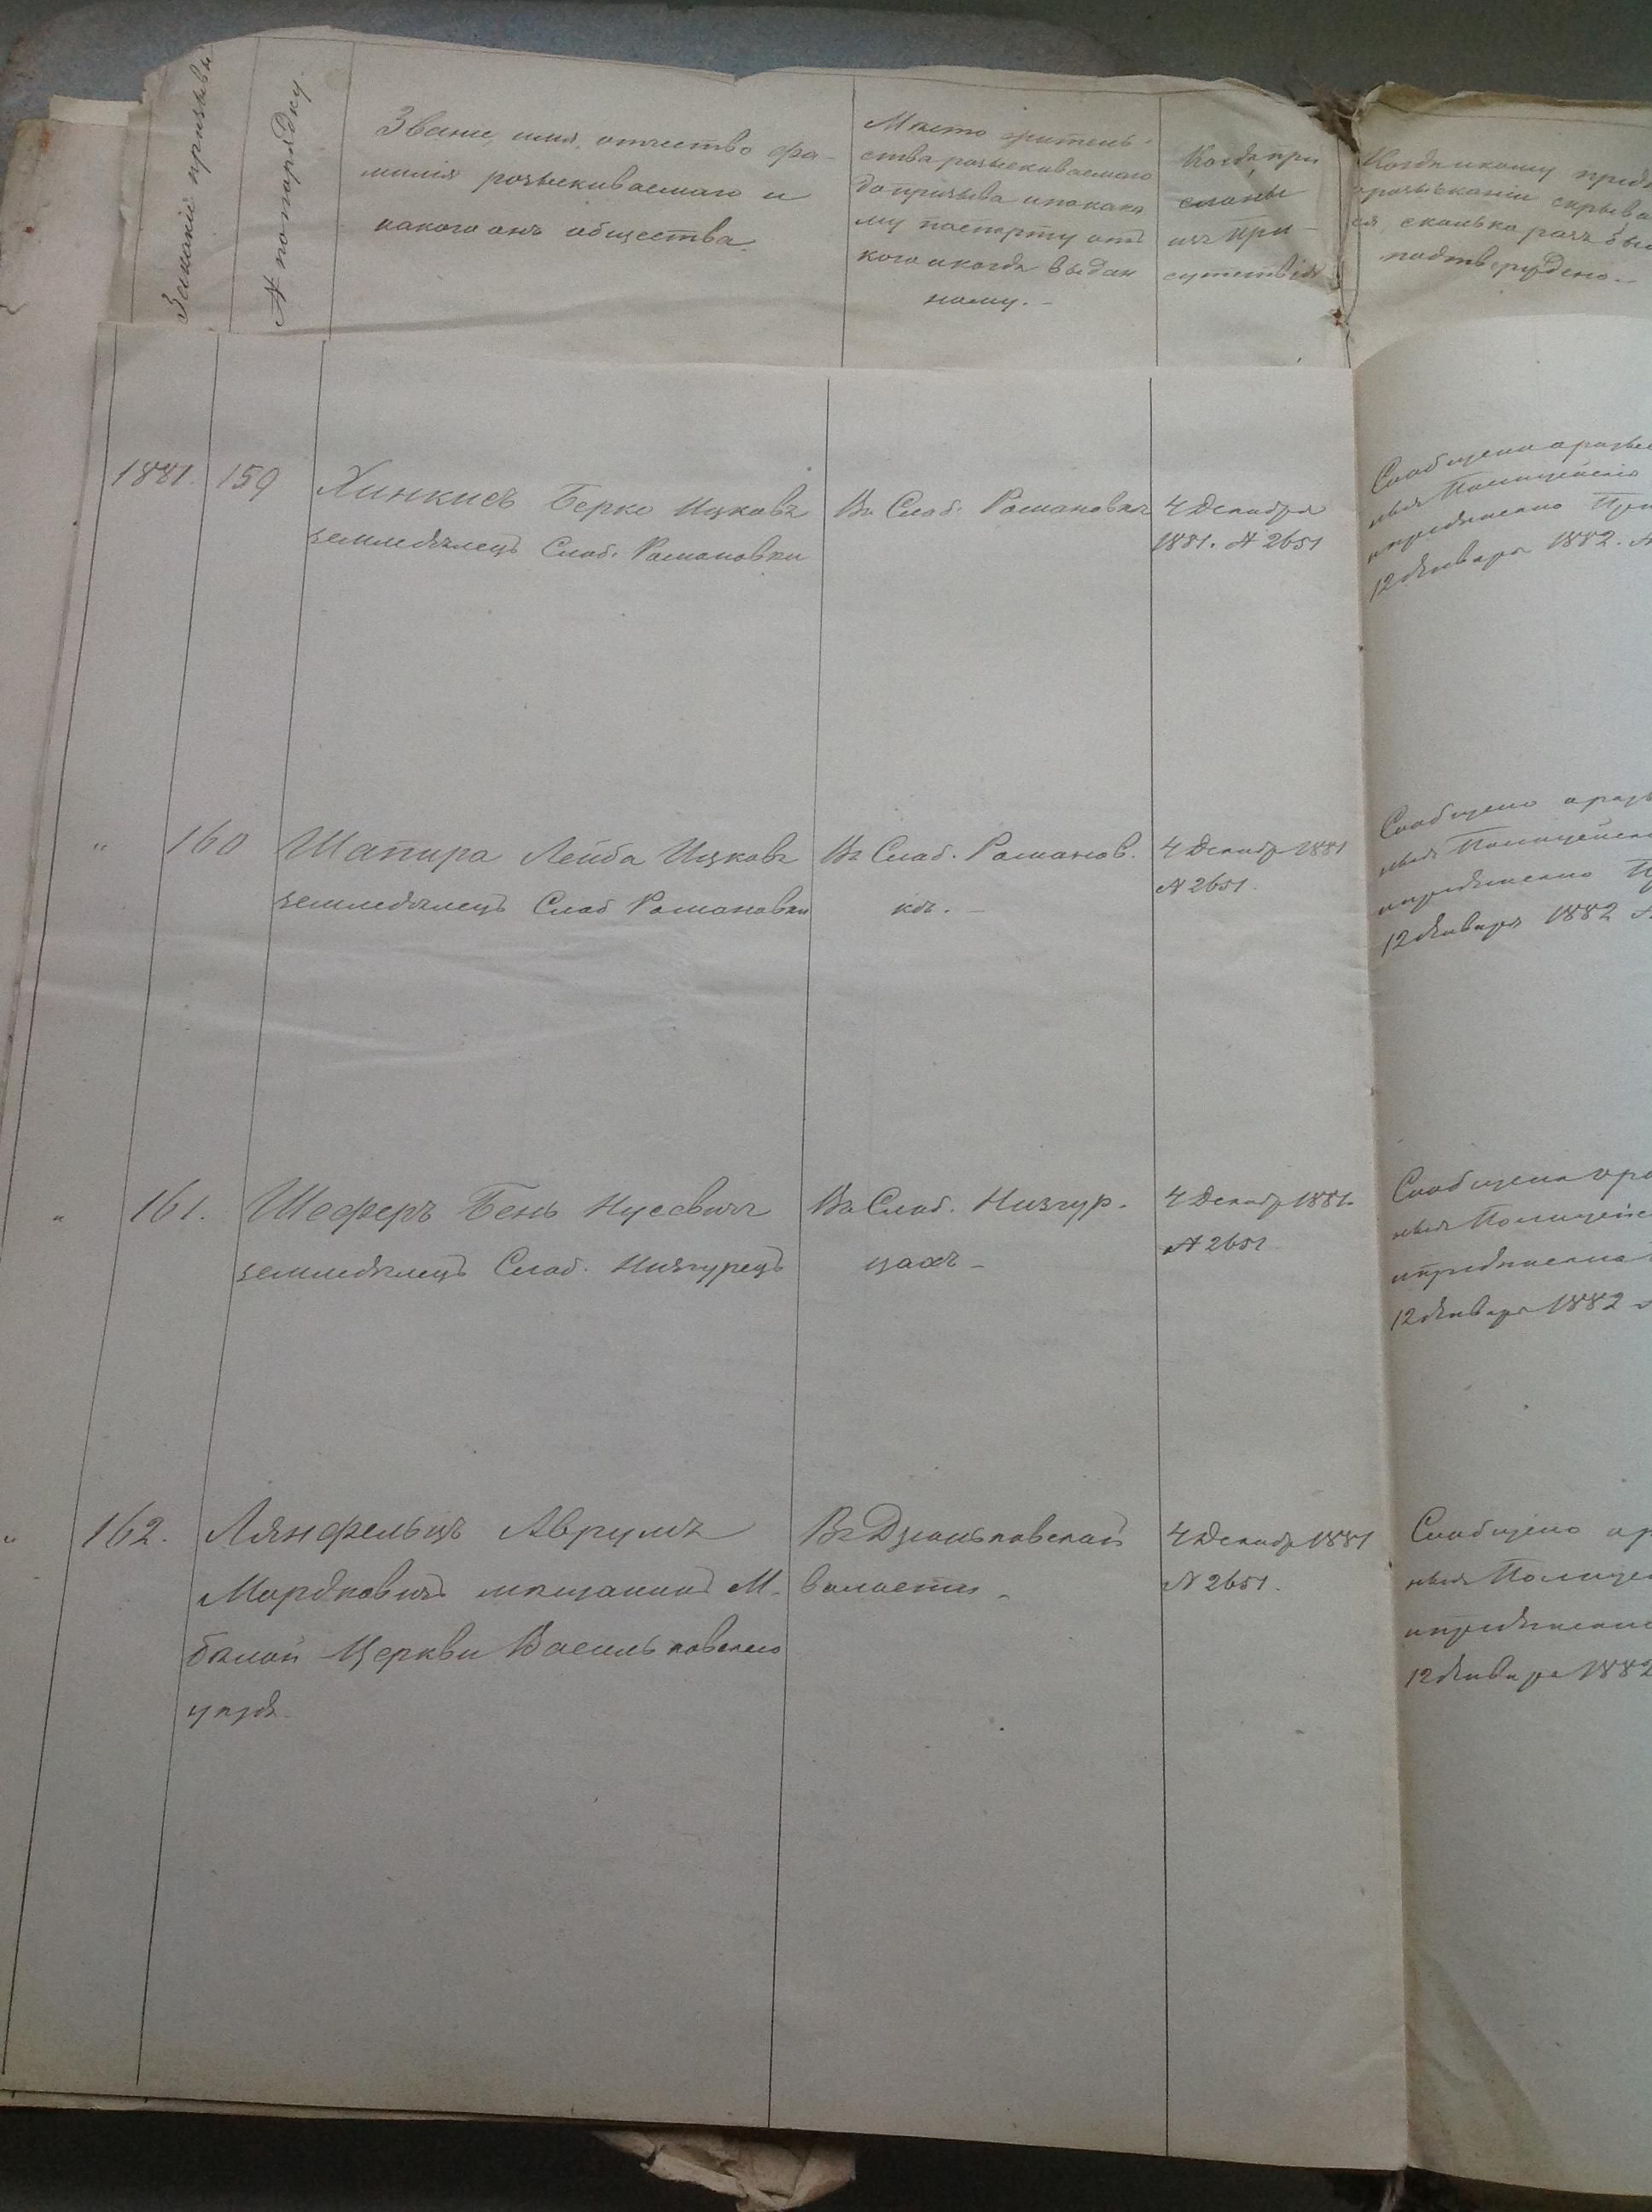 За какой призывъ
№ по порядку
Званіе, имя, отчество фа-
милія розыскиваемаго и
какого онъ общества
Мѣсто житель-
ства розыскиваемаго
до призыва и по како
му паспорту отъ
кого и когда выдан
ному. -
Когда при
сланы
изъ При-
сутствія
Когда и кому предп
о розысканіи скрыва
ся, сколько разъ был
подтверждено. -
1881. 159 Хинкисъ Берко Ицковъ
земледѣлецъ Слоб. Романовки
Въ Слоб. Романовкѣ
4 Декабря
1881. № 2651
Сообщено о розы
Полицейск
и предписано При
12 Января 1882. №
" 160 Шапира Лейба Ицковъ
земледѣлецъ Слоб Романовки
Въ Слоб. Романов.
кѣ. -
4 Декабр 1881
№ 2651.
Сообщено о розы
Полицейск
и предписано П
12 Января 1882 №
" 161. Шеферъ Бень Нусевичъ
земледѣлецъ Слоб. Низгурецъ
Въ Слоб. Низгур-
цахъ -
4 Декабр 1881.
№ 2651
Сообщено о ро
Полицейс
и предписано
12 Января 1882
" 162. Лянфельцъ Аврумъ
Мордковичъ мѣщанинъ М.
бѣлой Церкви Васильковскаго
уѣзда.
Въ Дзюньковской
волости -
4 Декабр 1881
№ 2651.
Сообщено о р
Полицей
и предписано
12 Января 1882